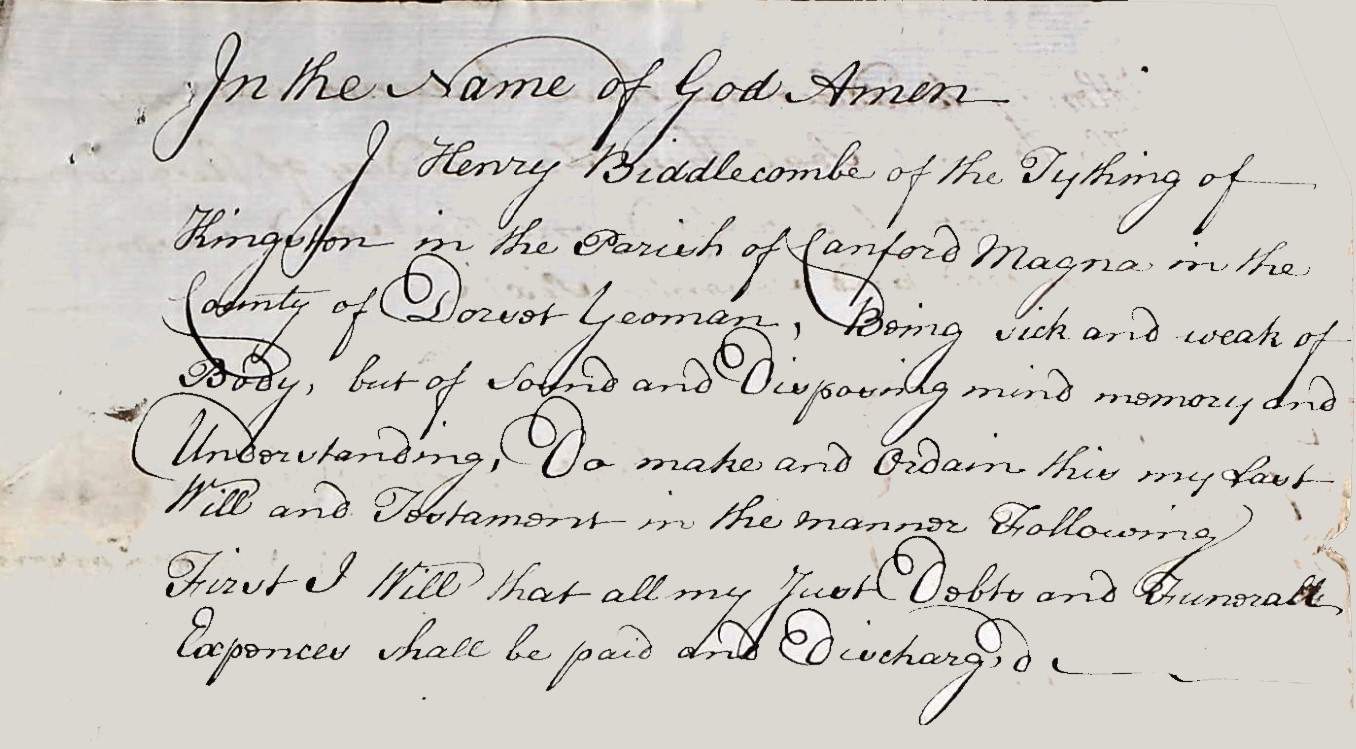 In the Name of God Amen
I Henry Biddlecombe of the Tything of
Kingston in the Parish of Canford Magna in the
County of Dorset Yeoman, Being sick and weak of
Body, but of sound and Disposing mind memory and
Understanding, Do make and Ordain this my Last
Will and Testament in the manner Following
First I Will that all my Just Debts and Funerall
Expences shall be paid and Discharg,d